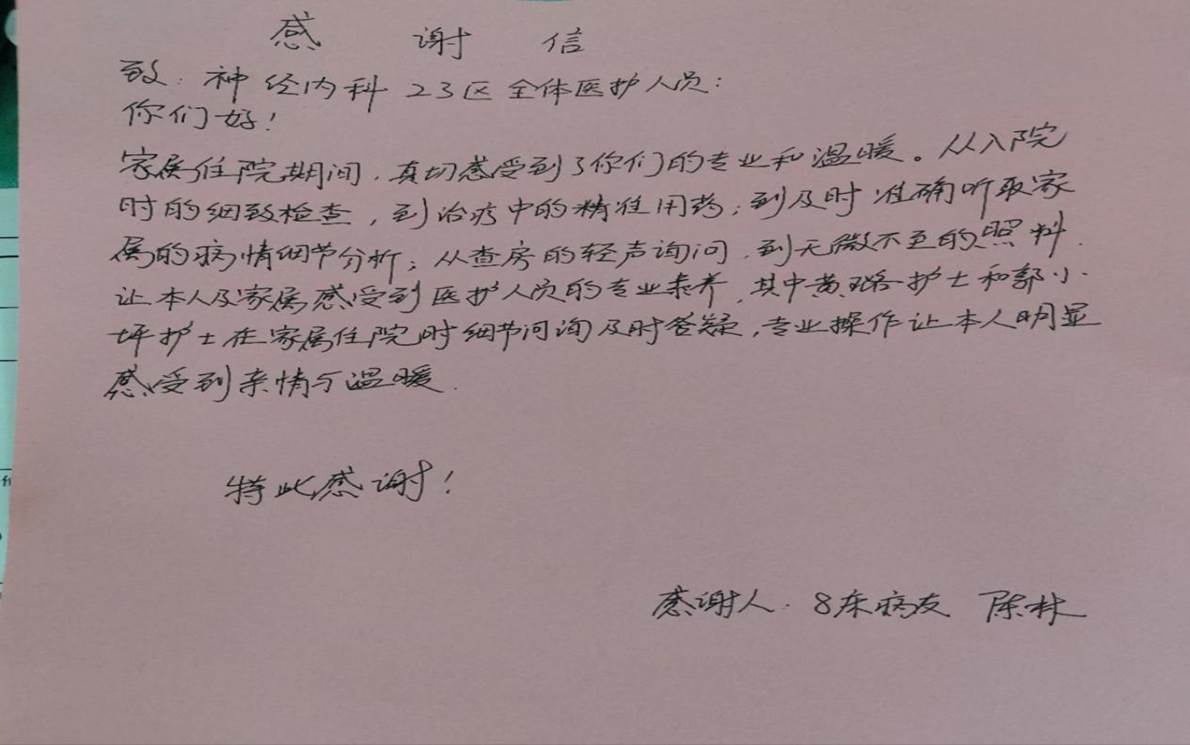 感谢信
致：神经内科23区全体医护人员：
你们好！
家属住院期间，真切感受到了你们的专业和温暖。从入院
时的细致检查，到治疗中的精准用药；到及时准确听取家
属的病情细节分析；从查房的轻声询问，到无微不至的照料.
让本人及家属感受到医护人员的专业素养，其中黄璐护士和郭小
坪护士在家属住院时细节问询及时答疑，专业操作让本人明显
感受到亲情与温暖.
特此感谢！
感谢人：8床病友 陈林